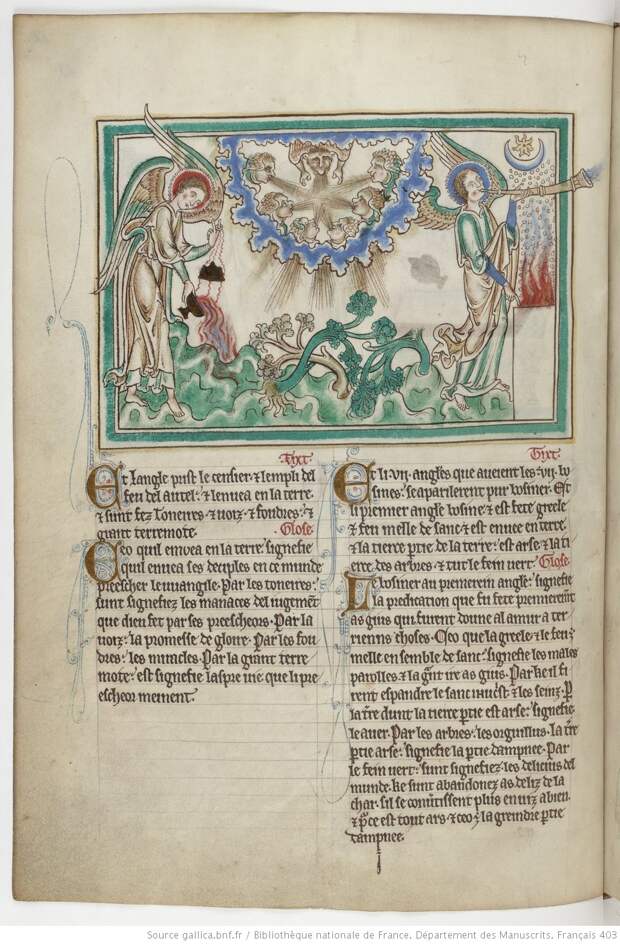 Tixt
Et langle prist le censier ⁊ lempli del
feu del autel· ⁊ lenuea en la terre·
⁊ sunt fez toneires ⁊ uoiz ⁊ foudres· ⁊
grant terremote·
Glose
Ceo quil enuea en la terre· signefie
quil enuea ses deciples en ce munde
preescher le uuangile· Par les toneires·
sunt signefiez les manaces del iugement
que dieu fet par ses preescheors· Par la
uoiz· la promesse de gloire· Par les fou
dres· les miracles· Par la grant terre
mote· est signefie laspre uie que li pre
escheor meinent·
Tixt
Et li·vii· angles que aueient les·vii· bu
sines· se aparilerent pur businer· Et
li premier angle busine ⁊ est fete greele
⁊ feu melle de sanc ⁊ est enuee en terre·
⁊ la tierce partie de la terre· est arse ⁊ la ti
erce des arbres· ⁊ tut le fein uert·
Glose
Le businer au premerein angle· signefie
la predication que fu fete premerement
as gius qui furent doune al amur a ter
riennes choses· Ceo que la greele ⁊ le feu
melle ensemble de sanc· signefie les males
parolles· ⁊ la grant ire as gius·
rent espandre le sanc
la terre dunt la tierce partie est arse· signefie
le auer· Par les arbres· les orguillus· la terce
partie arse· signefie la partie dampnee· Par
le fein uert· sunt signefiez· les delicius del
munde· ke sunt abandonez as deliz de la
char· sil se conutissent plus
⁊ ceo est la greindre partie
dampnee·
Source gallica.bnf.fr / Bibliothèque nationale de France. Département des Manuscrits. Français 403